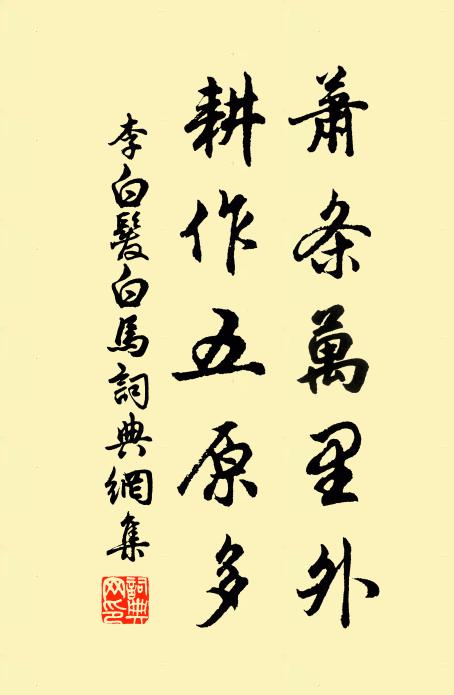 蕭条萬里外
耕作五原多
李白髮白馬詞典網集
詞典網印